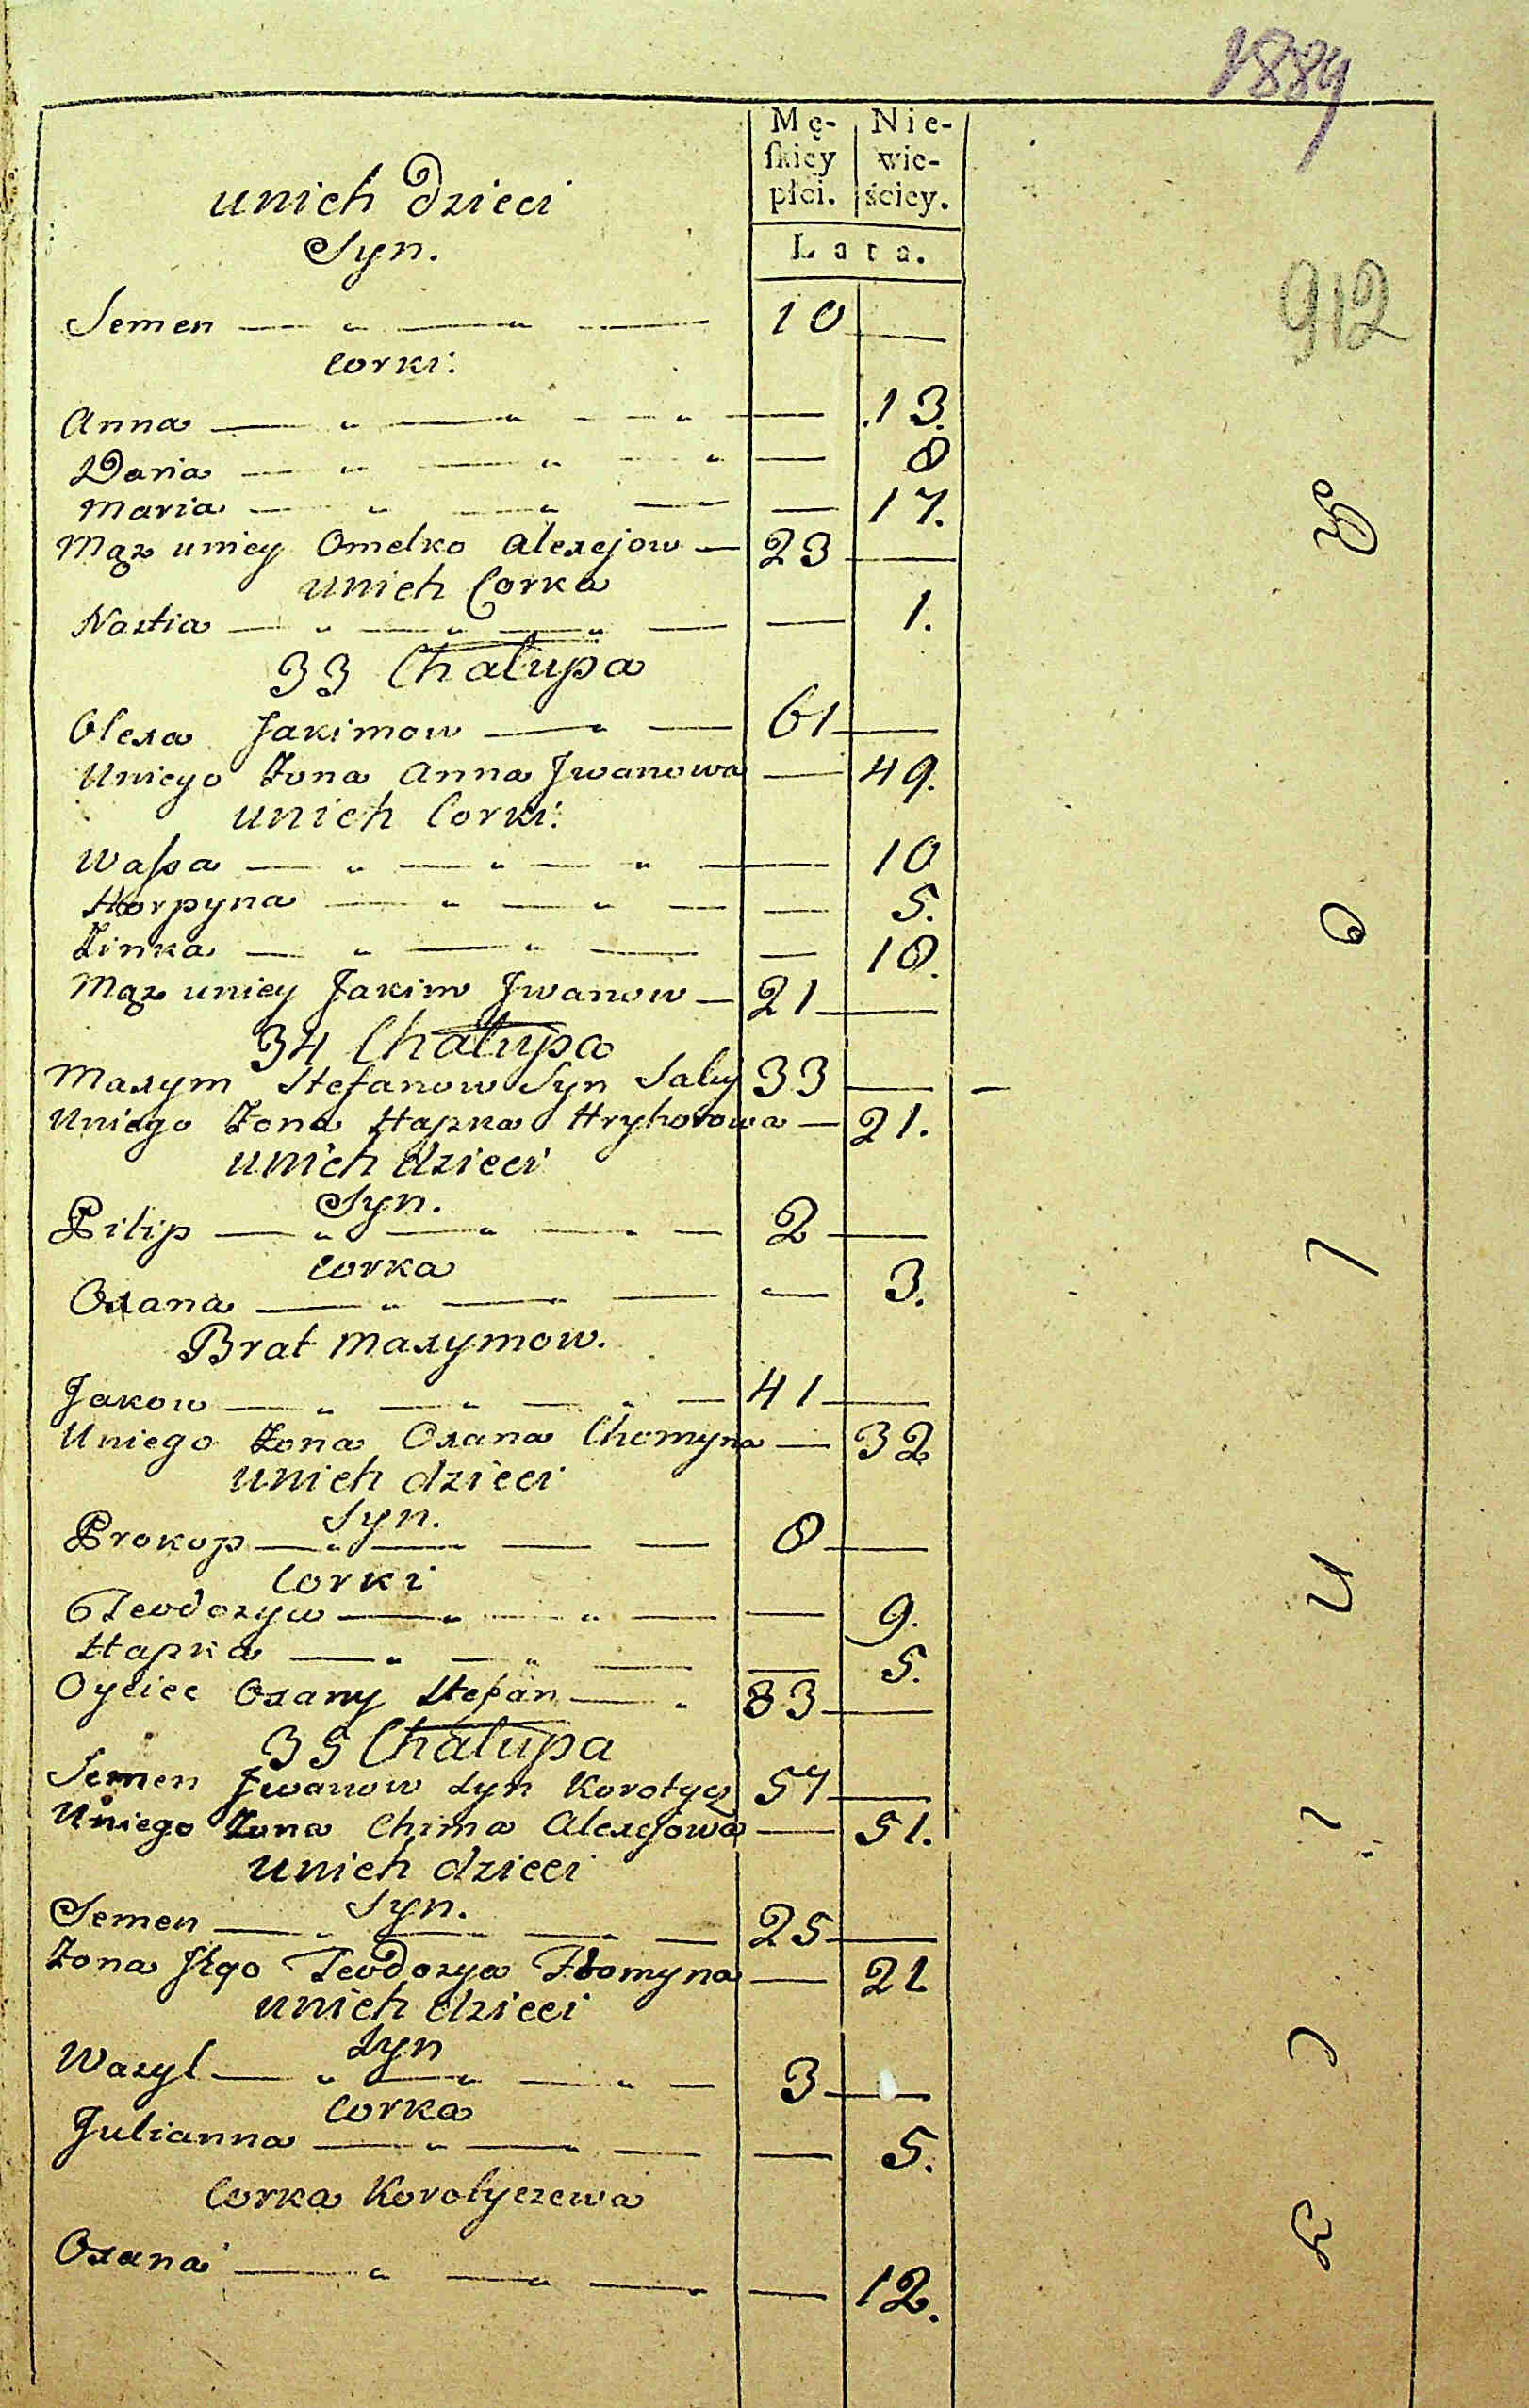 1889
Mę- Nie-
ſkiey wie-
płci. ściey.
unich dzieci
Syn.
Lata.
912
Semen — " — " — 10 —
Corki.
Anna — " — " — " — 13.
Daria — " — " — " — 8
Maria — " — " — — 17.
Mąz uniey Omelko Alexejow — 23 —
unich Corka
Nastia — " — " — " — — 1.
33 Chałupa
Olexa Jakimow — " — 61 —
Uniego Zona Anna Jwanowa — 49.
unich Corki.
Waſsa — " — " — " — 10
Horpyna — " — " — — 5.
Zinka — " — " — — 18.
Mąz uniey Jakim Jwanow — 21 —
34 Chałupa
Maxym Stefanow Syn Saly 33 — —
Uniego Zona Hapka Hryhorowa — 21.
unich dzieci
Syn.
Pilip — " — " — — 2 —
Corka
Oxana — " — — — 3.
Brat Maxymow.
Jakow — " — " — " — 41 —
Uniego Zona Oxana Chomyna — 32
unich dzieci
Syn.
Prokop — " — " — — 8 —
Corki
Teodozyw — " — " — — 9.
Hapka — " — " — — 5.
Oyciec Oxany Stefan — " 83 —
35 Chałupa
Semen Jwanow Syn Korotycz 57 —
Uniego Zona Chima Alexejowa — 51.
unich dzieci
Syn.
Semen — " — " — " — 25 —
Zona Jego Teodozya Thomyna — 21
unich dzieci
Syn
Wasyl — " — " — " — 3 —
Corka
Julianna — " — " — — 5.
Corka Korotyczewa
Oxana — " — " — " — 12.